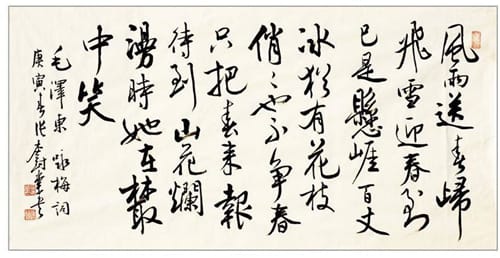 風雨送春歸
飛雪迎春到
已是懸崖百丈
冰猶有花枝
俏々也不争春
只把春来報
待到山花爛
漫時她在叢
中笑
毛澤東 咏梅詞
庚寅春